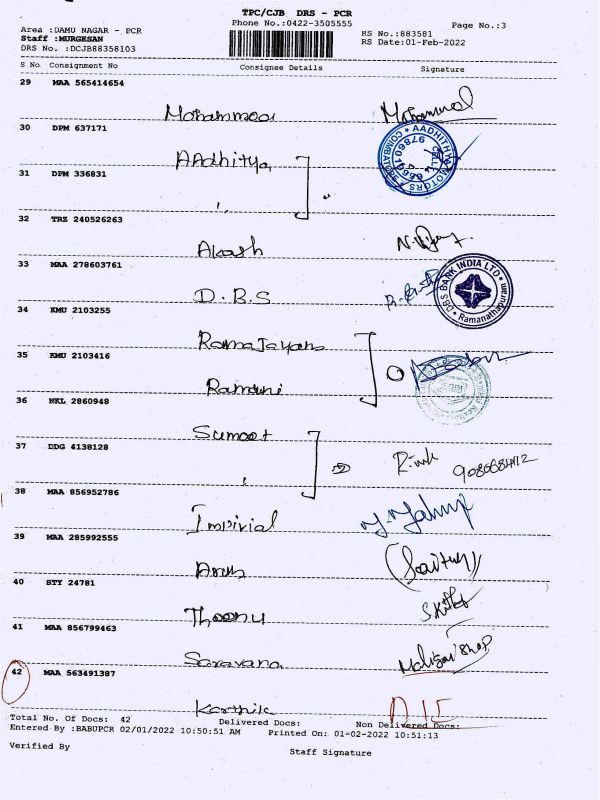 TPC/CJB DRS - PCR
Phone No.:0422-3505555
Page No.:3
Area :DAMU NAGAR - PCR
Staff :MURGESAN
DRS No. :DCJB88358103
RS No.:883581
RS Date:01-Feb-2022
S No Consignment No Consignee Details Signature
29 MAA 565414654
Mohammed Mohammed
30 DPM 637171
AAdhitya
31 DPM 336831
32 TRZ 240526263
Akash
33 MAA 278603761
D.B.S
DBS BANK INDIA LTD
Ramanathapuram
34 KMU 2103255
RamaJayam
35 KMU 2103416
Ramani
36 NKL 2860948
Sumeet
37 DDG 4138128
38 MAA 856952786
39 MAA 285992555
Arun
40 STY 24781
41 MAA 856799463
Saravana
42 MAA 563491387
Karthik
Total No. Of Docs: 42 Delivered Docs: Non Delivered Docs:
Entered By :BABUPCR 02/01/2022 10:50:51 AM Printed On: 01-02-2022 10:51:13
Verified By Staff Signature